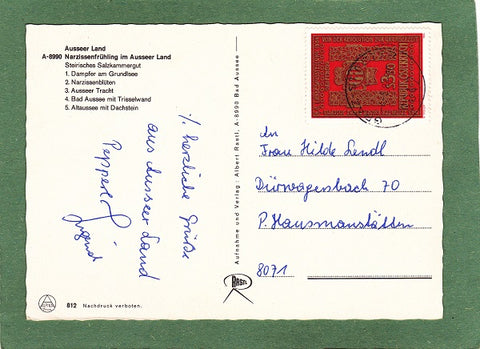 Ausseer Land
A-8990 Narzissenfrühling im Ausseer Land
Steirisches Salzkammergut
1. Dampfer am Grundlsee
2. Narzissenblüten
3. Ausseer Tracht
4. Bad Aussee mit Trisselwand
5. Altaussee mit Dachstein
herzliche Grüße
aus Ausseer Land
812 Nachdruck verboten.
Aufnahme und Verlag: Albert Rastl, A-8990 Bad Aussee
Rastl
S3.50
REPUBLIK ÖSTERREICH
An
Frau Hilde Lendl
Dürwagersbach 70
P. Hausmannstätten
8071